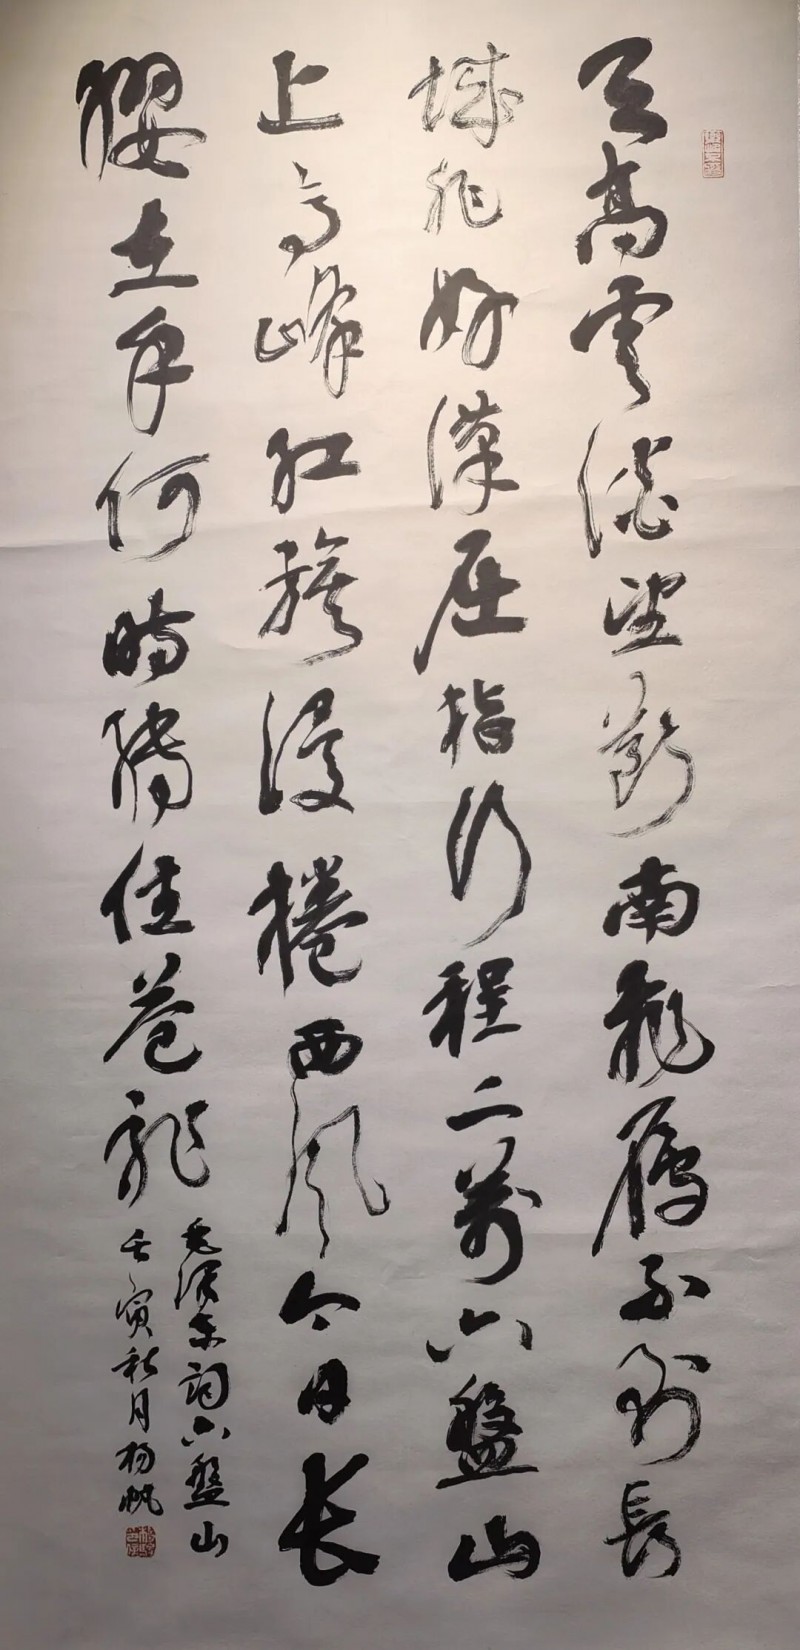 天高雲淡望斷南飛雁不到長
城非好漢屈指行程二萬六盤山
上高峰紅旗漫捲西風今日长
纓在手何時縛住苍龍
毛澤東詞六盤山
壬寅秋月杨帆